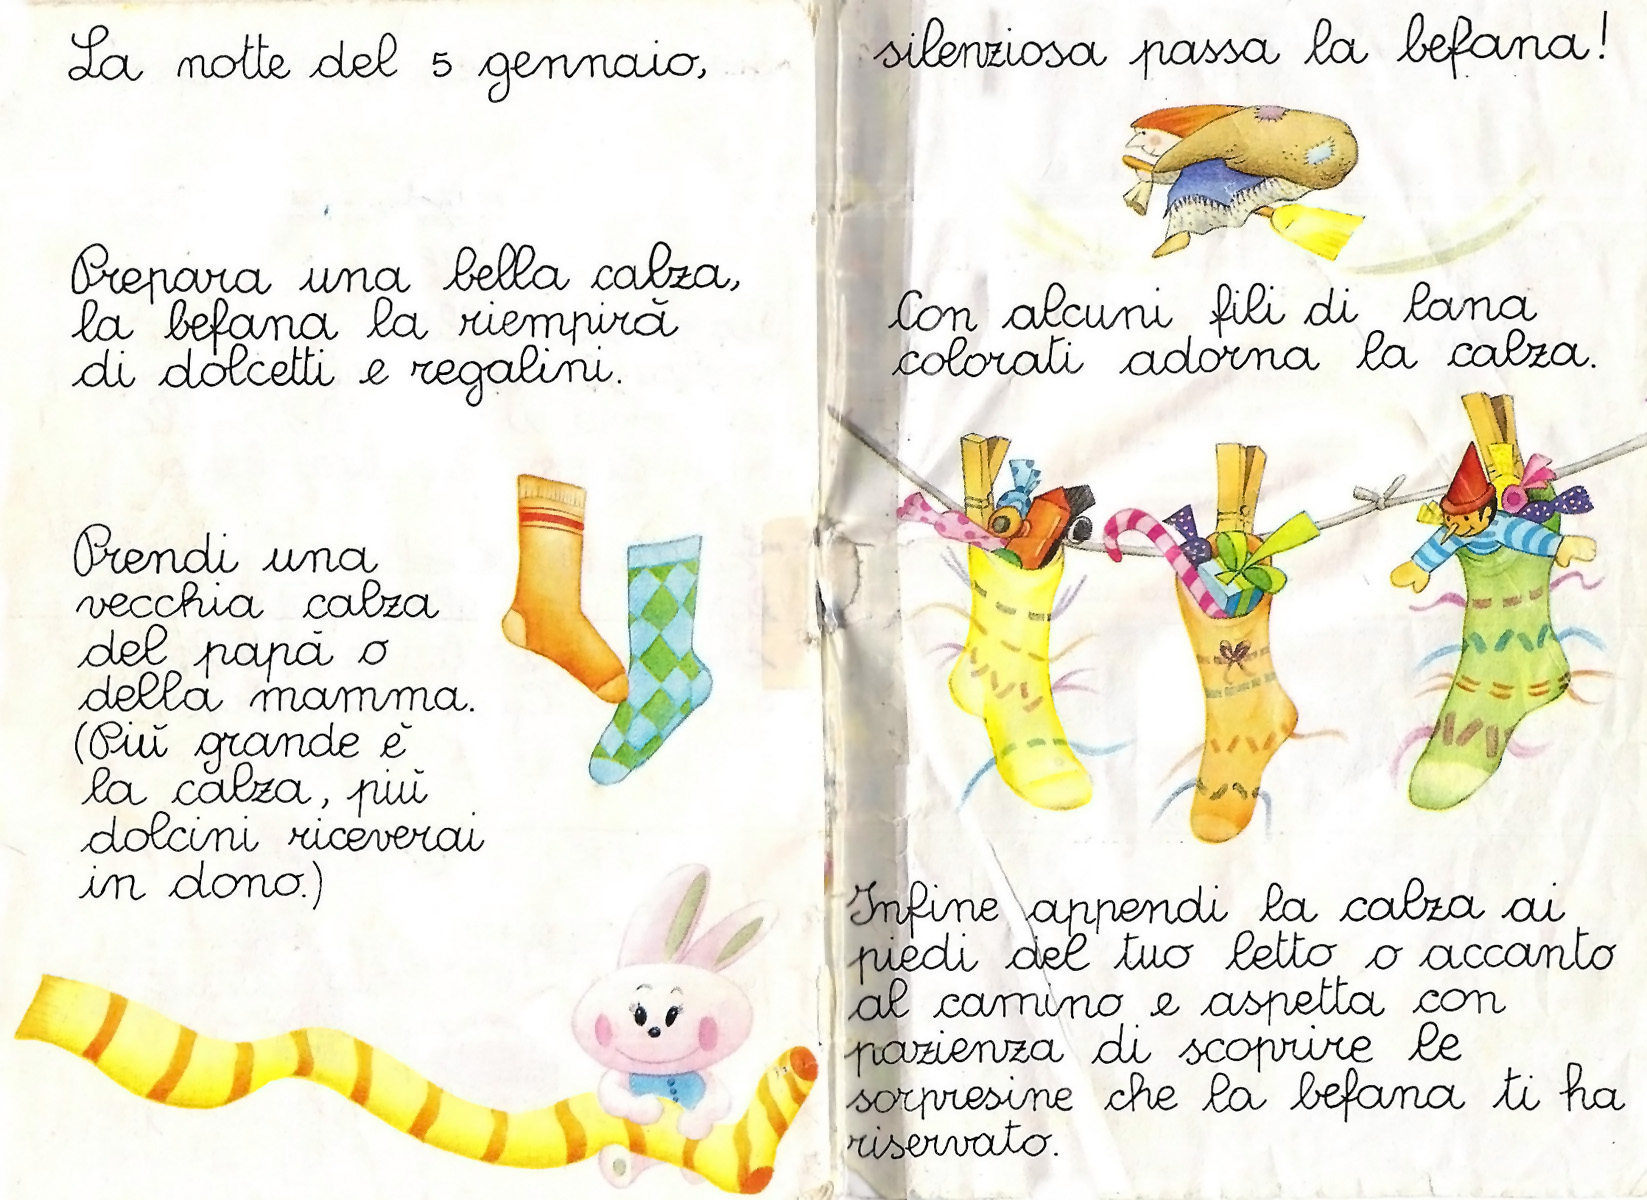 La notte del 5 gennaio,
Prepara una bella calza,
la befana la riempirà
di dolcetti e regalini.
Prendi una
vecchia calza
del papà o
della mamma.
(Più grande è
la calza, più
dolcini riceverai
in dono.)
silenziosa passa la befana!
Con alcuni fili di lana
colorati adorna la calza.
Infine appendi la calza ai
piedi del tuo letto o accanto
al camino e aspetta con
pazienza di scoprire le
sorpresine che la befana ti ha
riservato.